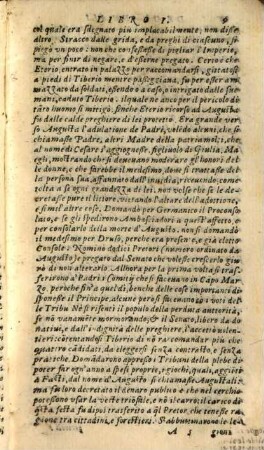 LIBRO I. 9
col quale era sdegnato piu implacabilmente; non disse
altro. Stracco dalle grida, e da preghi di ciascuno, si
piegò un poco: non che confessasse di pigliar l'Imperio,
ma per finir di negare, e d'esserne pregato. Certo è che
Eterio, entrato in palazzo per raccomandarsi, gittatosi
a piedi di Tiberio mentre passeggiaua, fu per esser am
mazzato da soldati, essendo a caso, o intrigato dalle sue
mani, caduto Tiberio. Il quale ne anco per il pericolo di
tāto huomo si mitigò, finche Eterio ricorse ad Augusta, e
fu dalle calde preghiere di lei protetto. Era grande ver
so Augusta l'adulatione de Padri, volēdo alcuni, che se
chiamasse Padre, altri Madre della patria: molti, che
al nome di Cesare s'aggiugnesse, figliuolo di Giulia. Ma
egli, mostrando che si deueuano moderare gli honori del
le donne, e che farebbe il medesimo, doue si trattasse del
la persona sua, affannato dall'inuidia, riceuendo, come
tolta a se ogni grandezza di lei, non volse che se le de
cretasse pure il littore, vietando l'altare dell'adottione,
e simil altre cose. Domandò per Germanico il Proconso
lato, e se gli spedirono Ambasciadori a quest'effetto, e
per consolarlo della morte d'Augusto. non si domandò
il medesimo per Druso, perche era presente, e già eletto
Console. Nominò dodici Pretori, numero ordinato da
Augusto, e pregato dal Senato che volesse crescerlo, giu
rò di non alterarlo. Allhora per la prima volta si tras
ferirono a Padri i Comitij che si faceuano in Capo Mar
zo. perche sin a quel dì, benche delle cose importanti di
sponesse il Principe, alcune però si faceuano co i voti del
le Tribu. Ne si risentì il populo della perduta auttorità,
se non vanamente mormorando: & il Senato, libero da
natiui, e dall'indignità delle preghiere, l'accettò volen
tieri, contentandosi Tiberio di nō raccomandar più che
quattro cādidati, da eleggersi senza contrasto, e senza
pratiche. Domādarono appresso i Tribuni della plebe di
poter far ogn'anno a spese proprie, i giochi, quali, aggiōti
a Fasti, dal nome d'Augusto si chiamassero Augustali.
ma furono decretati di denaro publico, e che nel cerchio
potessono vsar la veste triōfale, e nō il carro: il carico di
questa festa fu dipoi trasferito a quel Pretor, che tenesse ra
gione tra cittadini, e forestieri.